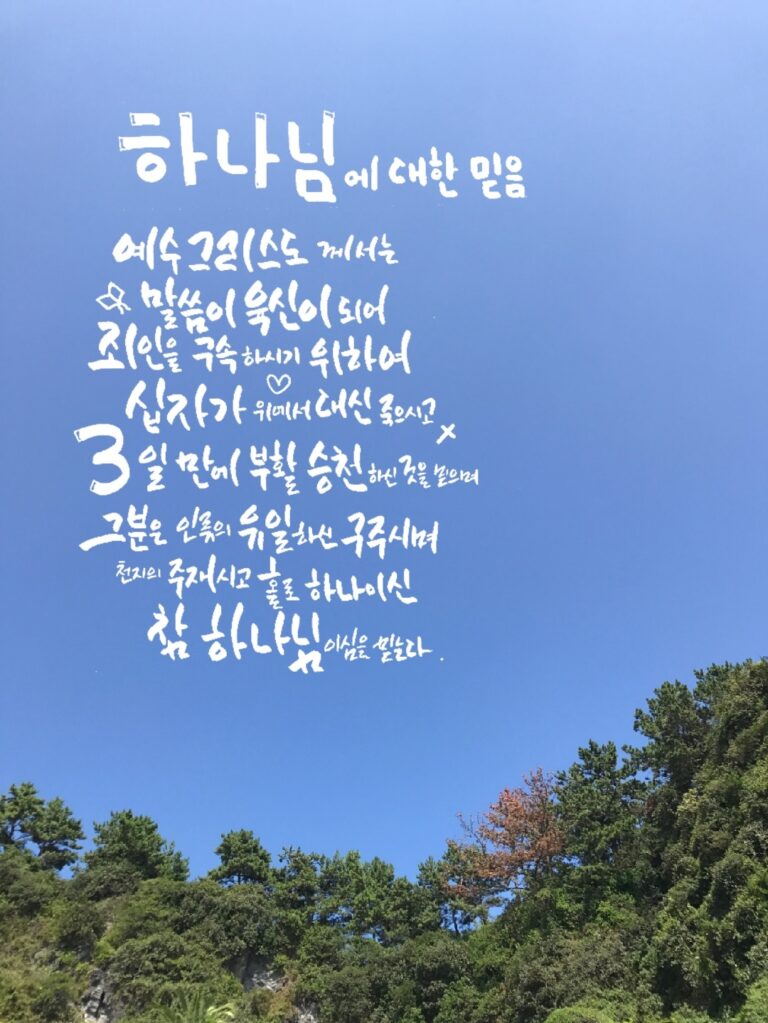 하나님에 대한 믿음
예수 그리스도 께서는
말씀이 육신이 되어
죄인을 구속하시기 위하여
십자가 위에서 대신 죽으시고
3일 만에 부활 승천하신 것을 믿으며
그분은 인류의 유일하신 구주시며
천지의 주재시고 홀로 하나이신
참 하나님이심을 믿는다.